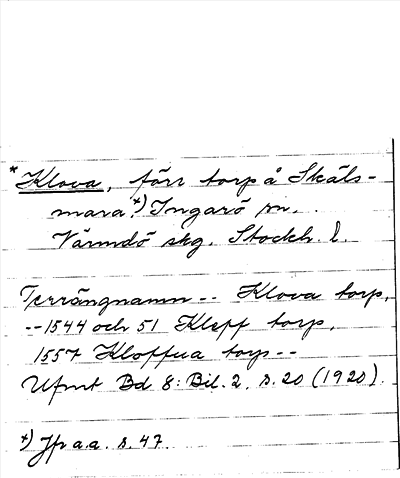 * Klova, förr torp å Skäls-
mara x) Ingarö sn.
Värmdö skg. Stockh. l.
Terrängnamn -- Klova torp,
-- 1544 och 51 Kleff torp,
1557 Kloffua torp --
Ufmt Bd 8: Bil. 2, s. 20 (1920).
x) Jfr a.a. s. 47.